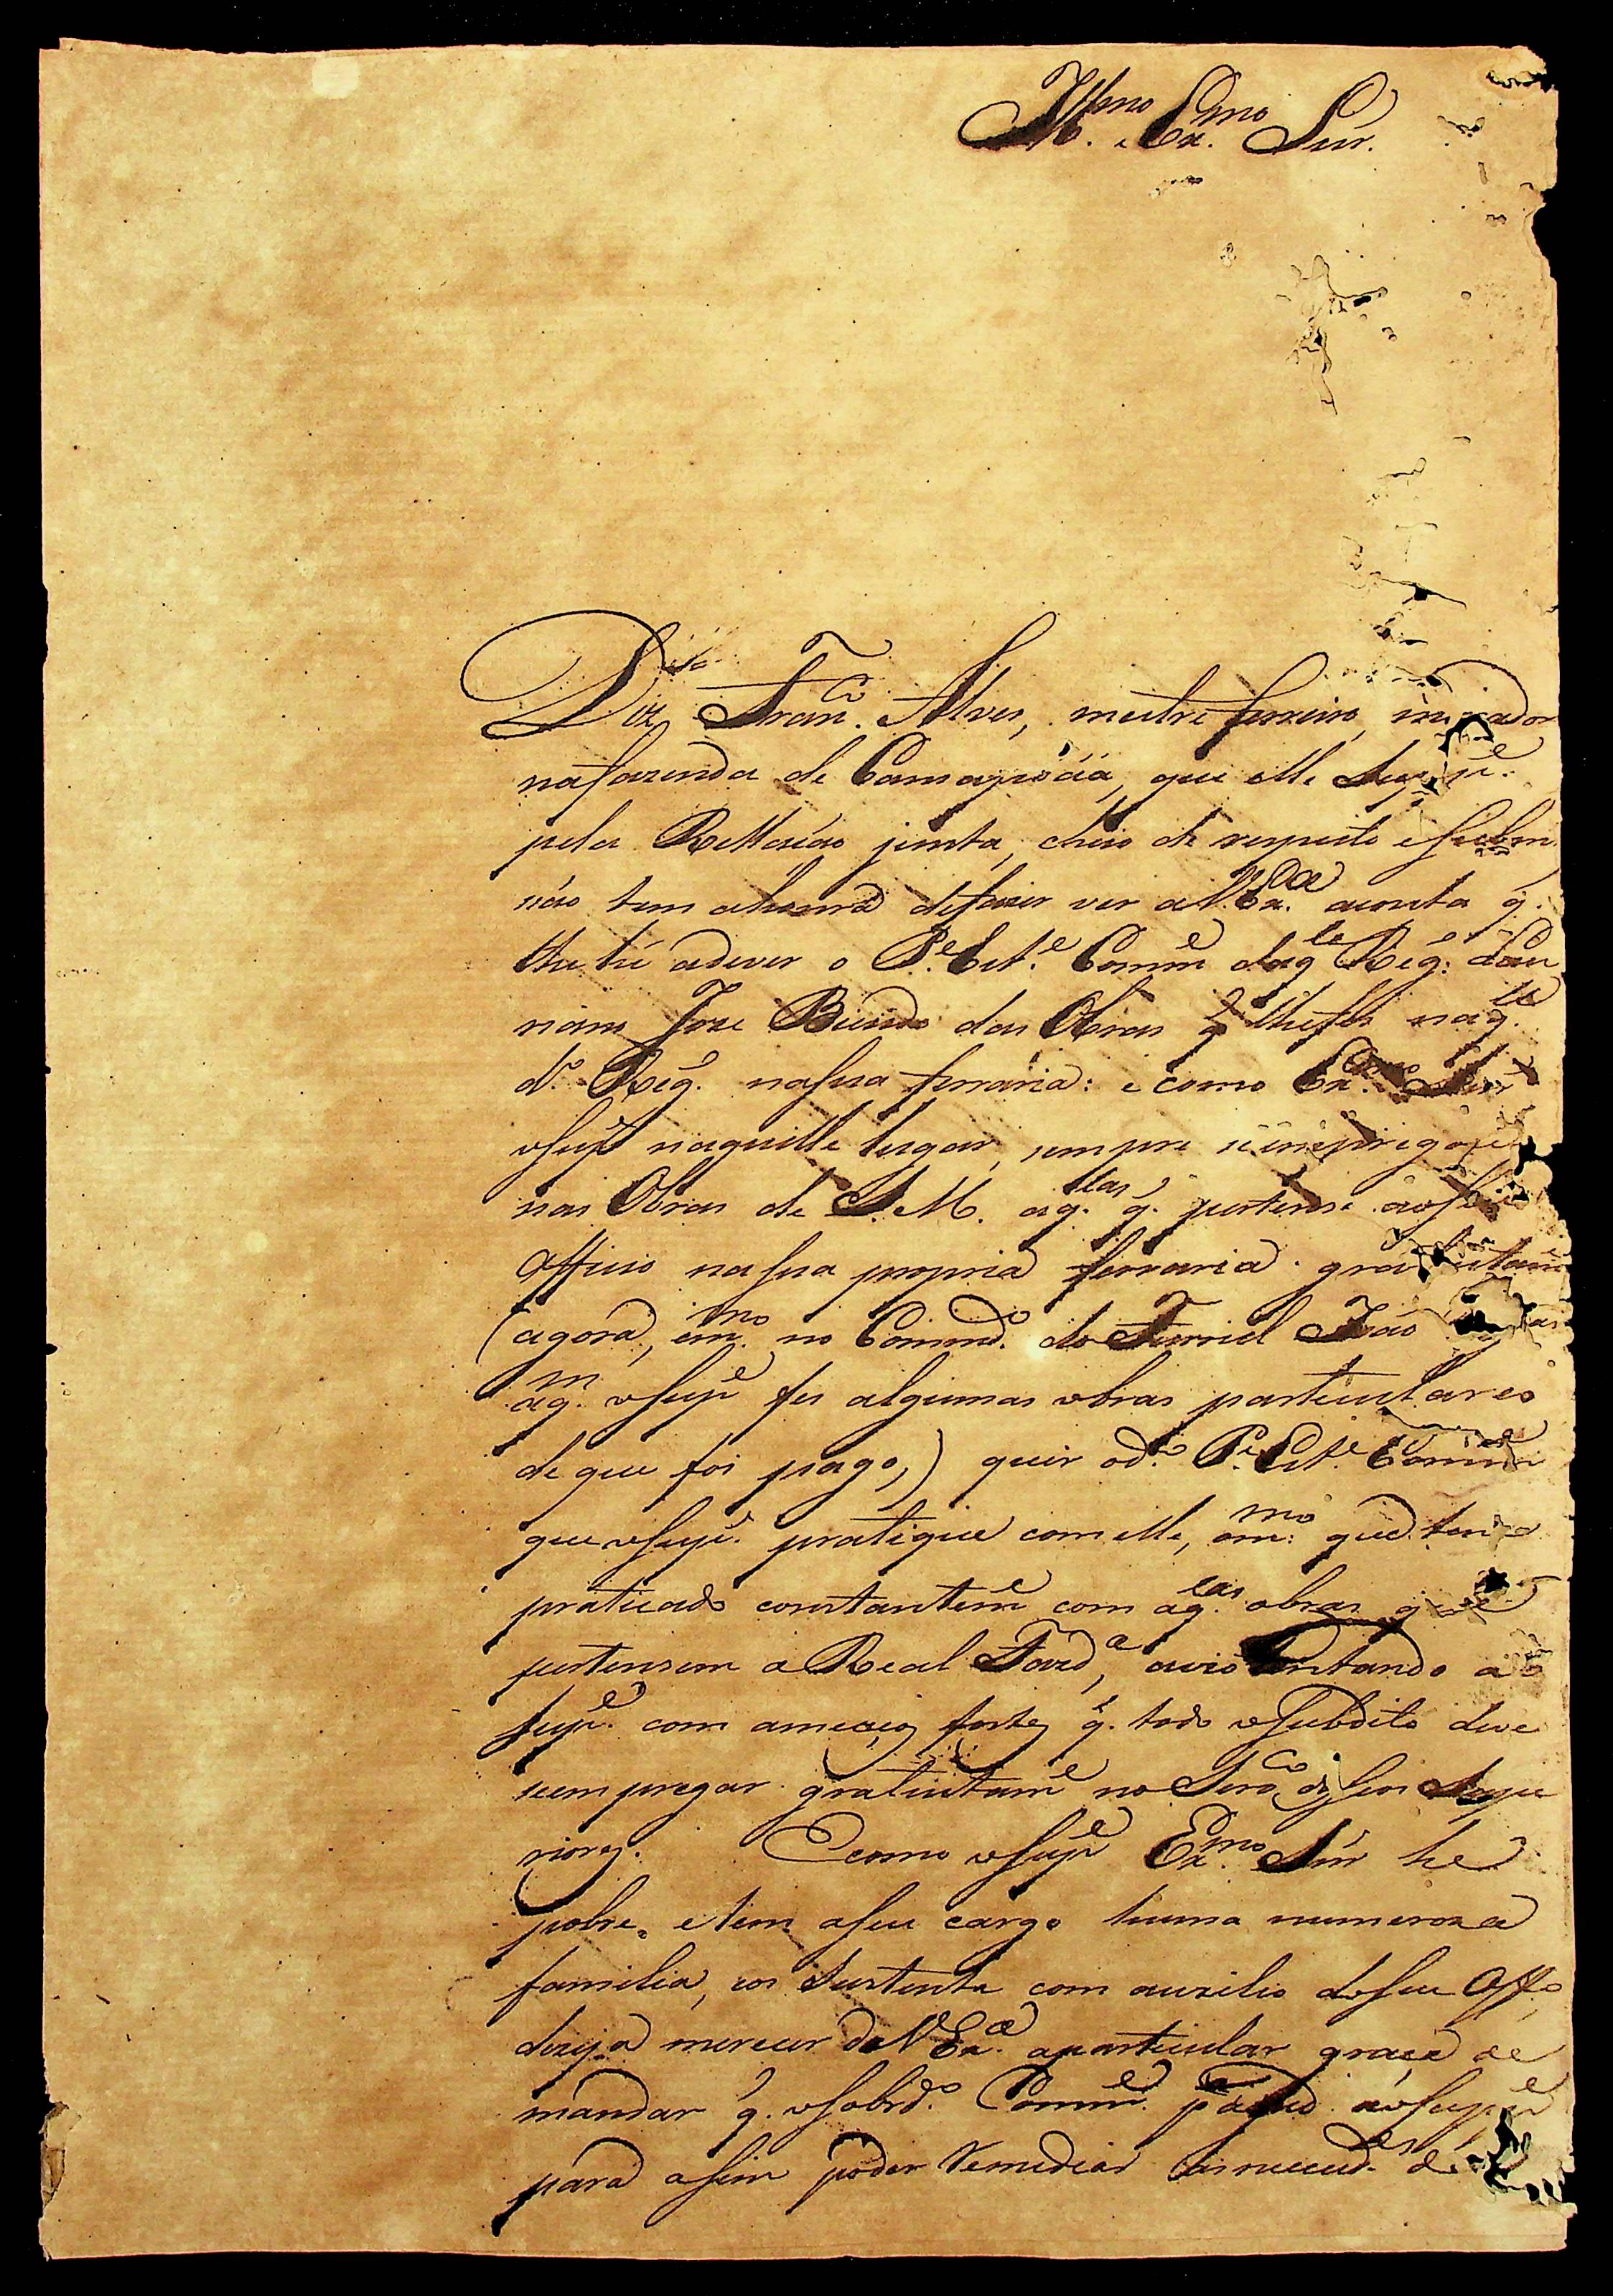 Ill.mo e Ex.mo Snr.
Diz Fran.co Alves, mestre ferreiro, morador
na fazenda de Camapoãa, que elle Supp.e
pela Rellacáo junta, cheio de respeito e Submi
são tem a honra de fazer ver a V. Ex.cia a conta q.
lhe he a dever o P.e Est.e Comm.e daq.le Reg.
Joze Bueno das Obras q. lhe fes naq.le
d.o Reg. na sua ferraria: e como Ex.mo Snr
o Sup.e naquelle lugar, sempre se impregou
nas Obras de S. M. aq.las q. pertense ao seo
Officio na sua propria ferraria gratuitam.e
(agora, em no Comm.do do Furriel João
aq.m o Sup.e fes algumas obras particulares
de que foi pago,) quer o d.o P.e Est.e Comm.e
que o Sup.e pratique com elle, o m.mo que tem
praticado constantem.e com aq.las obras que
pertensem a Real Fazd.a, aviolentando ao
Sup.e com ameaços fortes q. todo o Subdito deve
se empregar gratuitam.e no Serv.co dos seos Supe
riores. E como o Sup.e Ex.mo Snr he
pobre, e tem a seu cargo huma numeroza
familia, e os Sustenta com auxilio do seu Off.o,
dezeja merecer de V Ex.cia a particular graça de
mandar q. o Sobrd.o Comm.e pague ao Sup.e
para asim poder Remediar as necessid.es de